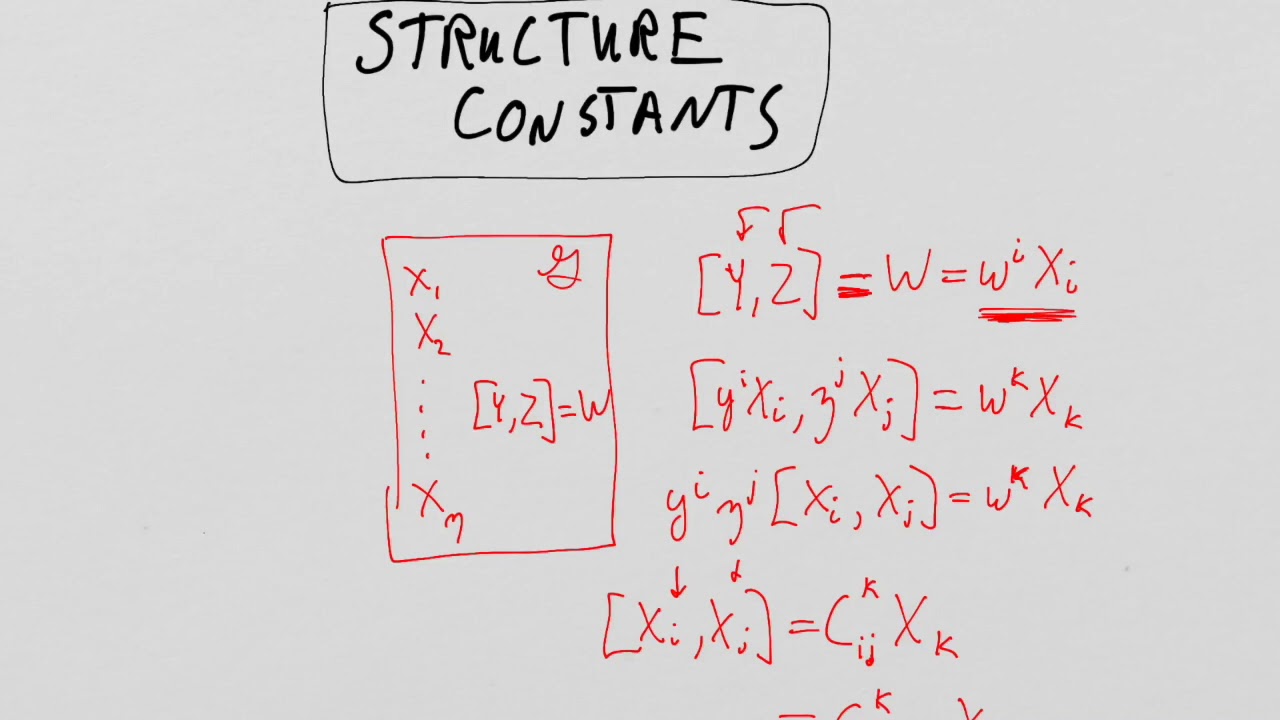 STRUCTURE
CONSTANTS
𝒢
X₁
X₂
⋮
[Y,Z]=W
Xₙ
[Y,Z] = W = wⁱXᵢ
[yⁱXᵢ, zʲXⱼ] = wᵏXₖ
yⁱzʲ[Xᵢ, Xⱼ] = wᵏXₖ
[Xᵢ, Xⱼ] = Cᵢⱼᵏ Xₖ